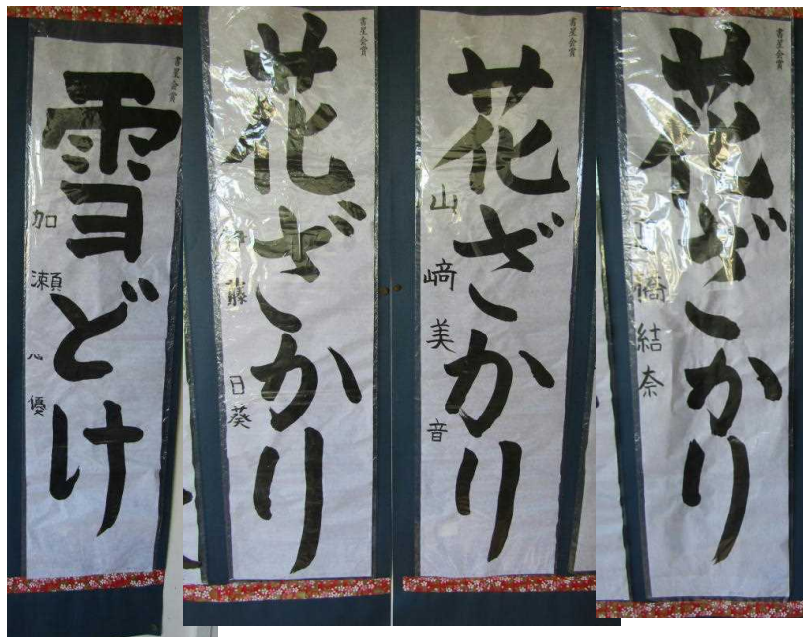 書星会賞
雪どけ
加瀬心優
書星会賞
花ざかり
伊藤日葵
書星会賞
花ざかり
山﨑美音
書星会賞
花ざかり
橋結奈